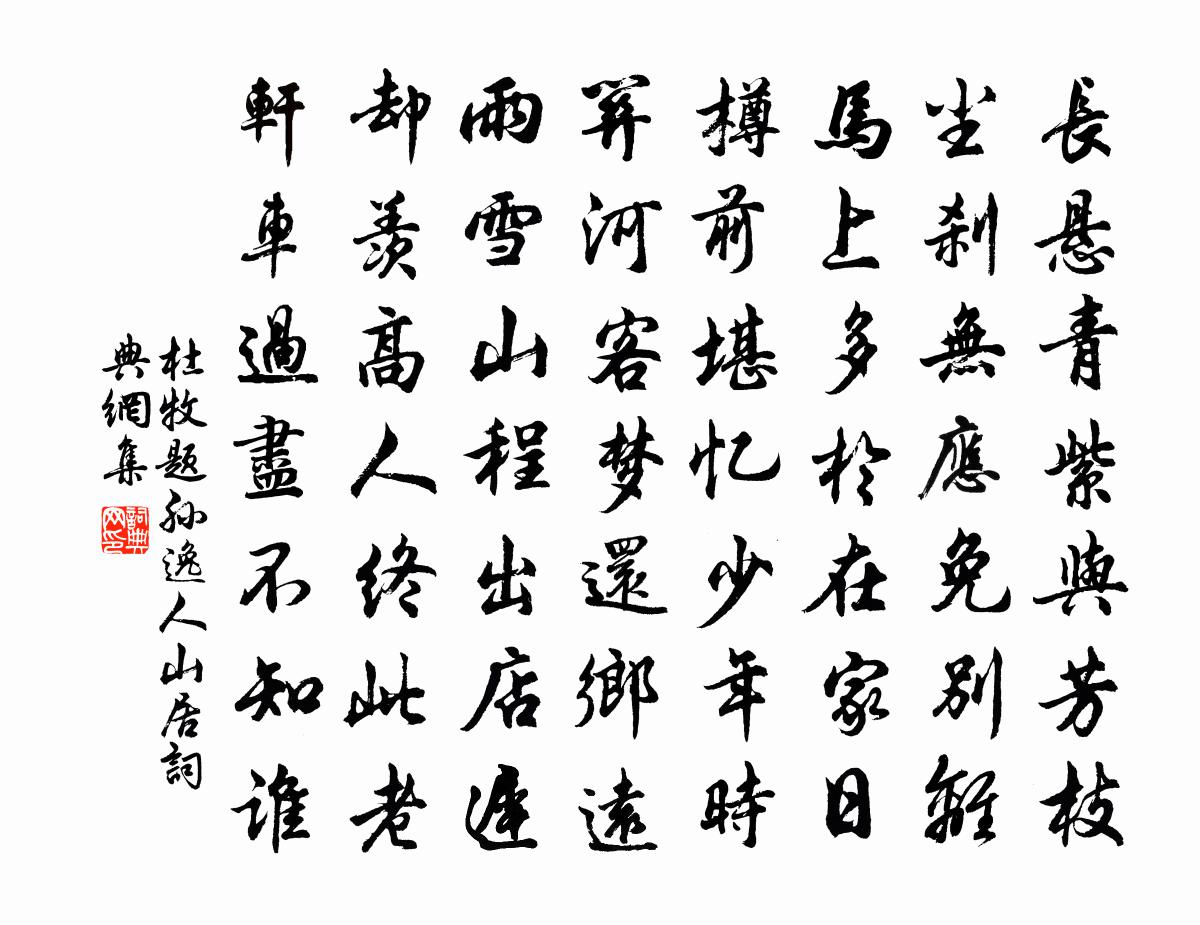 長懸青紫與芳枝
尘刹無應免别離
馬上多於在家日
樽前堪忆少年時
關河客梦還鄉遠
雨雪山程出店遲
却羡高人终此老
軒車過盡不知誰
杜牧题孙逸人山居詞
典網集
詞典
网印